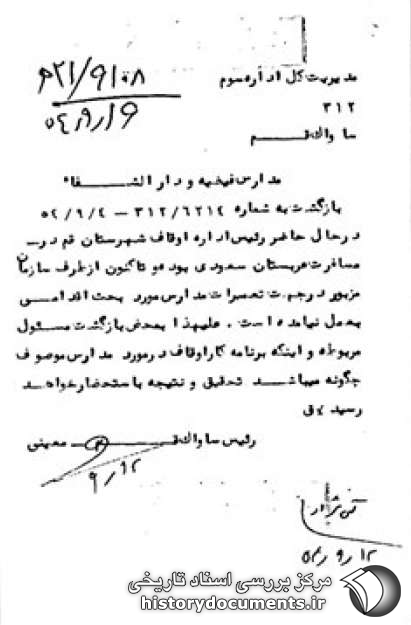 ۲۱/۹۱۰۸
مدیریت کل اداره سوم
۳۱۲
ساواک قم
مدارس فیضیه و دارالشفاء
بازگشت به شماره ۳۱۲/۶۲۱۴ – ۵۴/۹/۴
درحال حاضر رئیس اداره اوقاف شهرستان قم در
مسافرت عربستان سعودی بوده و تاکنون ازطرف سازمان
مزبور درجهت تعمیرات مدارس مورد بحث اقدامی
بعمل نیامده است . علیهذا بمحض بازگشت مسئول
مربوطه و اینکه برنامه کار اوقاف درمورد مدارس موصوف
چگونه میباشد تحقیق و نتیجه باستحضار خواهد
رسید
رئیس ساواک قم معینی
۹/۱۲
۵۴/۹/۱۲
مرکز بررسی اسناد تاریخی
historydocuments.ir